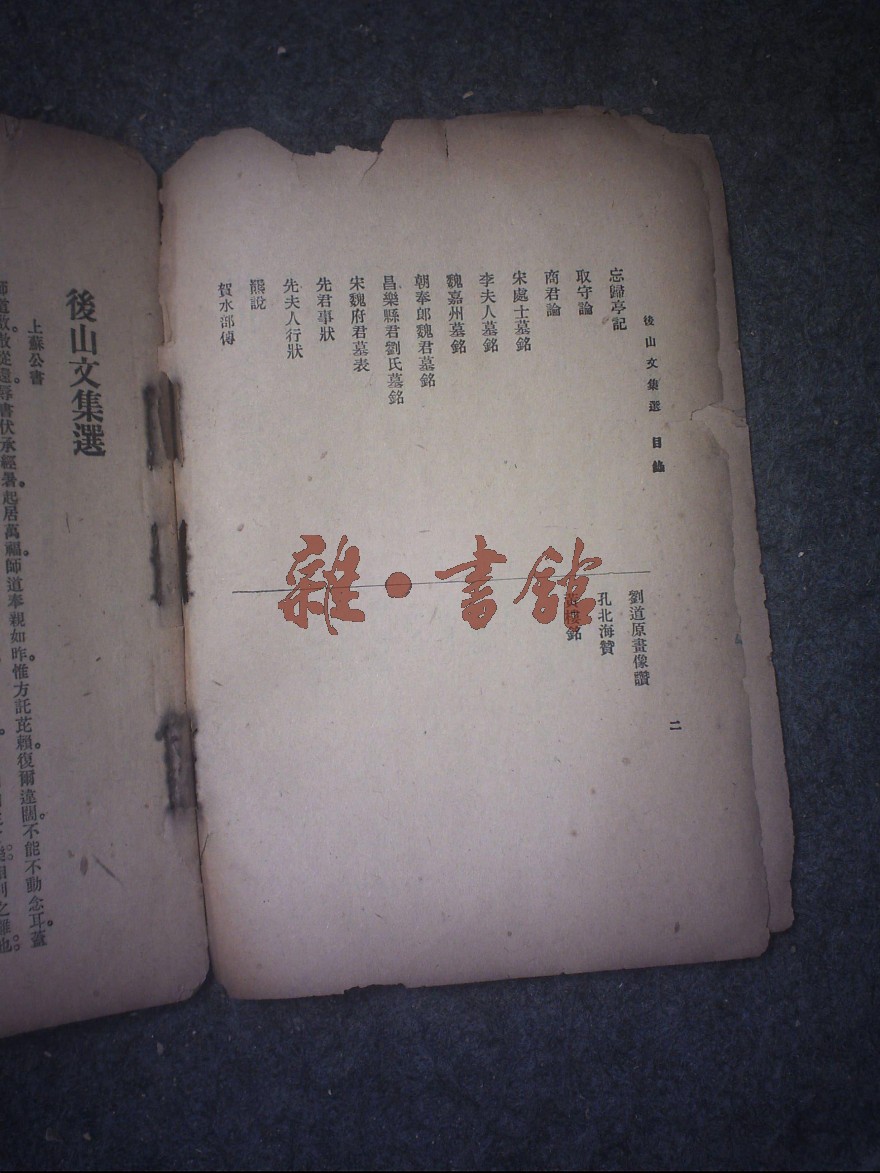 後山文集選　目錄
二
忘歸亭記
取守論
商君論
宋處士墓銘
李夫人墓銘
魏嘉州墓銘
朝奉郎魏君墓銘
昌樂縣君劉氏墓銘
宋魏府君墓表
先君事狀
先夫人行狀
賀水部傳
劉道原畫像讚
孔北海贊
黃樓銘
雜·書館
後山文集選
上蘇公書
起居萬福。師道奉親如昨。惟方託芘賴。復爾違闊。不能不動念耳。蓋